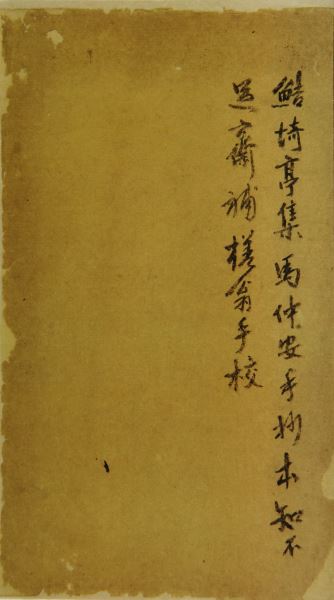 鮚埼亭集馬仲安手抄本知不
足齋補槎翁手校